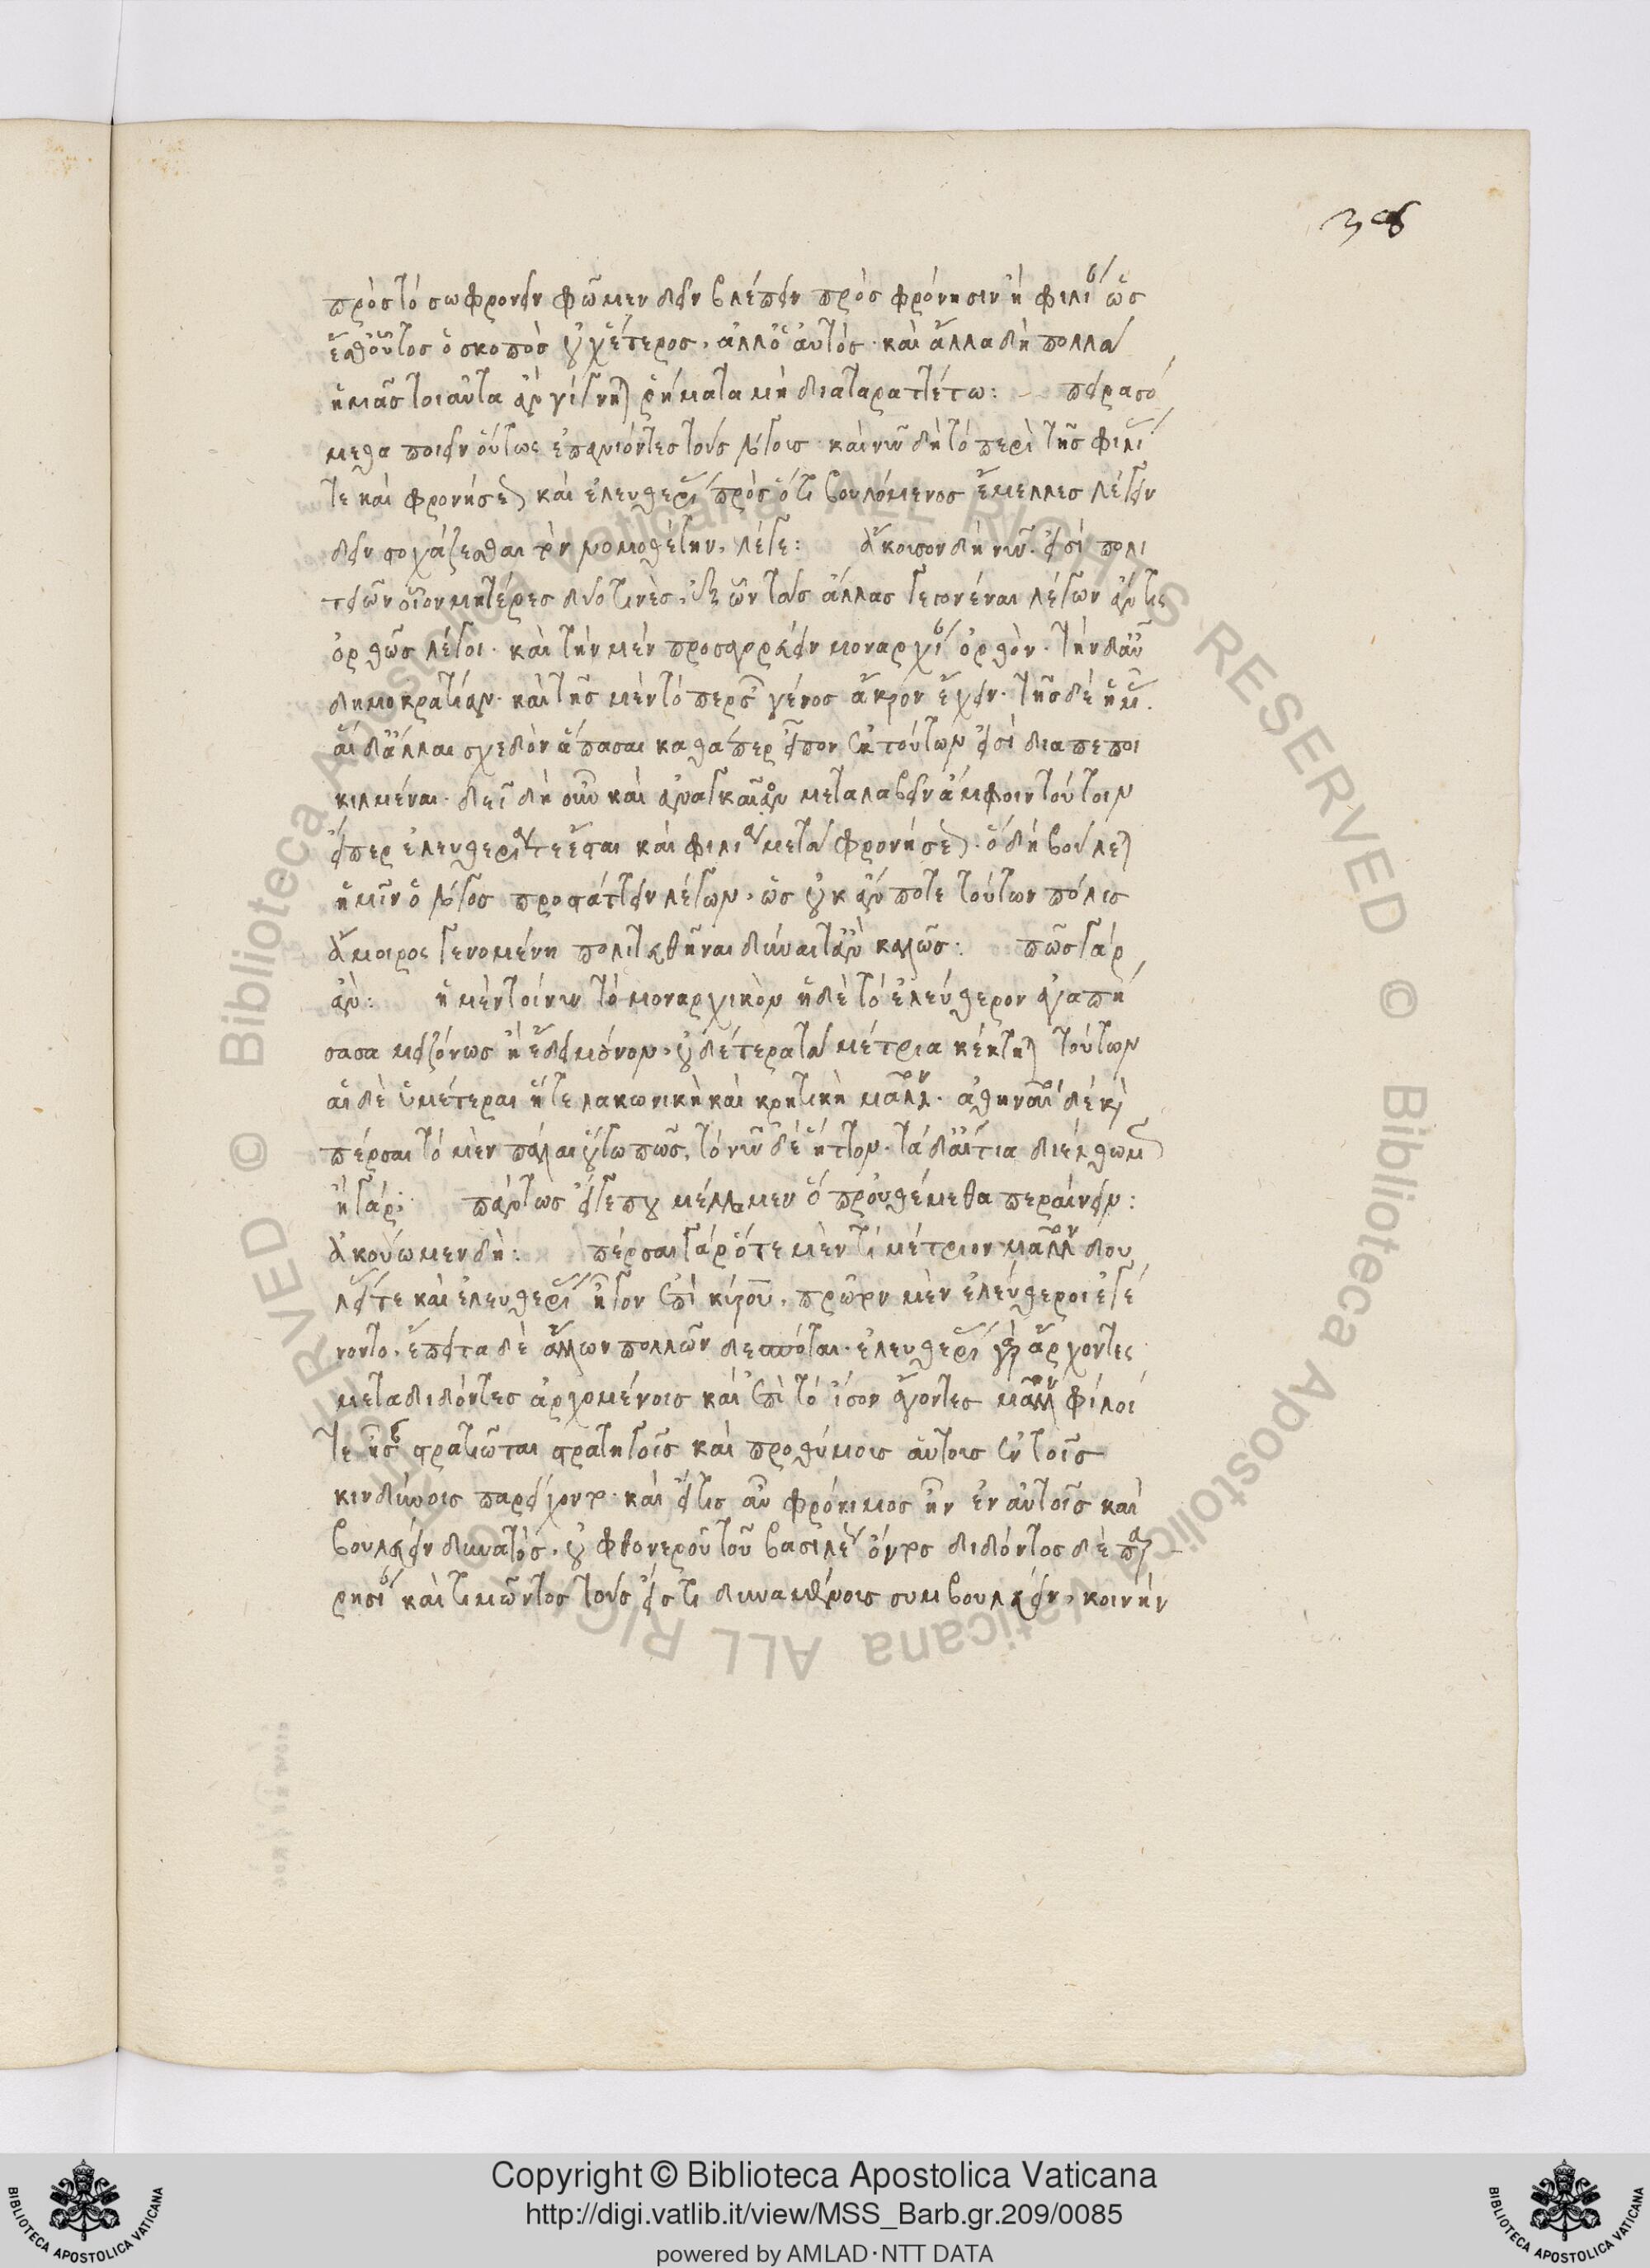 398
πρὸς τὸ σωφρονεῖν φῶμεν δεῖν βλέπειν πρὸς φρόνησιν ἢ φιλίας ὡς
ἔσθ' οὗτος ὁ σκοπὸς οὐχ ἕτερος, ἀλλ' ὁ αὐτός. καὶ ἄλλα δὴ πολλὰ
ἡμᾶς τοιαῦτα ἂν γίγνηται ῥήματα μὴ διαταραττέτω: πειρασό
μεθα ποιεῖν οὕτως ἐπανιόντες τοὺς λόγους. καὶ νῦν δὴ τὸ περὶ τῆς φιλίας
τε καὶ φρονήσεως καὶ ἐλευθερίας πρὸς ὅ τι βουλόμενος ἔμελλες λέγειν
δεῖν στοχάζεσθαι τὸν νομοθέτην, λέγε: ἄκουσον δὴ νῦν. εἰσὶ πολι
τειῶν οἷον μητέρες δύο τινὲς, ἐξ ὧν τὰς ἄλλας γεγονέναι λέγων ἄν τις
ὀρθῶς λέγοι. καὶ τὴν μὲν προσαγορεύειν μοναρχίας ὀρθὸν. τὴν δ' αὖ
δημοκρατίαν. καὶ τῆς μὲν τὸ περσῶν γένος ἄκρον ἔχειν. τῆς δὲ ἡμᾶς.
αἱ δ' ἄλλαι σχεδὸν ἅπασαι καθάπερ εἶπον ἐκ τούτων εἰσὶ διαπεποι
κιλμέναι. δεῖ δὴ οὖν καὶ ἀναγκαῖον μεταλαβεῖν ἀμφοῖν τούτοιν
εἴπερ ἐλευθερία τε ἔσται καὶ φιλία μετὰ φρονήσεως. ὃ δὴ βούλεται
ἡμῖν ὁ λόγος προστάττειν λέγων, ὡς οὐκ ἄν ποτε τούτων πόλις
ἄμοιρος γενομένη πολιτευθῆναι δύναιτ' ἂν καλῶς: πῶς γὰρ
ἂν: ἡ μὲν τοίνυν τὸ μοναρχικὸν ἡ δὲ τὸ ἐλεύθερον ἀγαπή
σασα μειζόνως ἢ ἔδει μόνον, οὐδέτερα τὰ μέτρια κέκτηται τούτων
αἱ δὲ ὑμέτεραι ἥ τε λακωνικὴ καὶ κρητικὴ μᾶλλον. ἀθηναῖοι δὲ καὶ
πέρσαι τὸ μὲν πάλαι οὕτω πως, τὸ νῦν δὲ ἧττον. τὰ δ' αἴτια διέλθωμεν
ἢ γάρ; πάντως εἴ γέ που μέλλομεν ὃ προὐθέμεθα περαίνειν:
ἀκούωμεν δὴ: πέρσαι γὰρ ὅτε μὲν τὶ μέτριον μᾶλλον δου
λείας τε καὶ ἐλευθερίας ἦγον ἐπὶ κύρου, πρῶτον μὲν ἐλεύθεροι ἐγέ
νοντο, ἔπειτα δὲ ἄλλων πολλῶν δεσπόται. ἐλευθερίας γὰρ ἄρχοντες
μεταδιδόντες ἀρχομένοις καὶ ἐπὶ τὸ ἴσον ἄγοντες μᾶλλον φίλοι
τε ἦσαν στρατιῶται στρατηγοῖς καὶ προθύμους αὑτοὺς ἐν τοῖς
κινδύνοις παρείχοντο. καὶ εἴ τις αὖ φρόνιμος ἦν ἐν αὐτοῖς καὶ
βουλεύειν δυνατός, οὐ φθονεροῦ τοῦ βασιλέως ὄντος διδόντος δὲ παρ
ρησίας καὶ τιμῶντος τοὺς εἴς τι δυναμένους συμβουλεύειν, κοινὴν
Copyright © Biblioteca Apostolica Vaticana
http://digi.vatlib.it/view/MSS_Barb.gr.209/0085
powered by AMLAD·NTT DATA